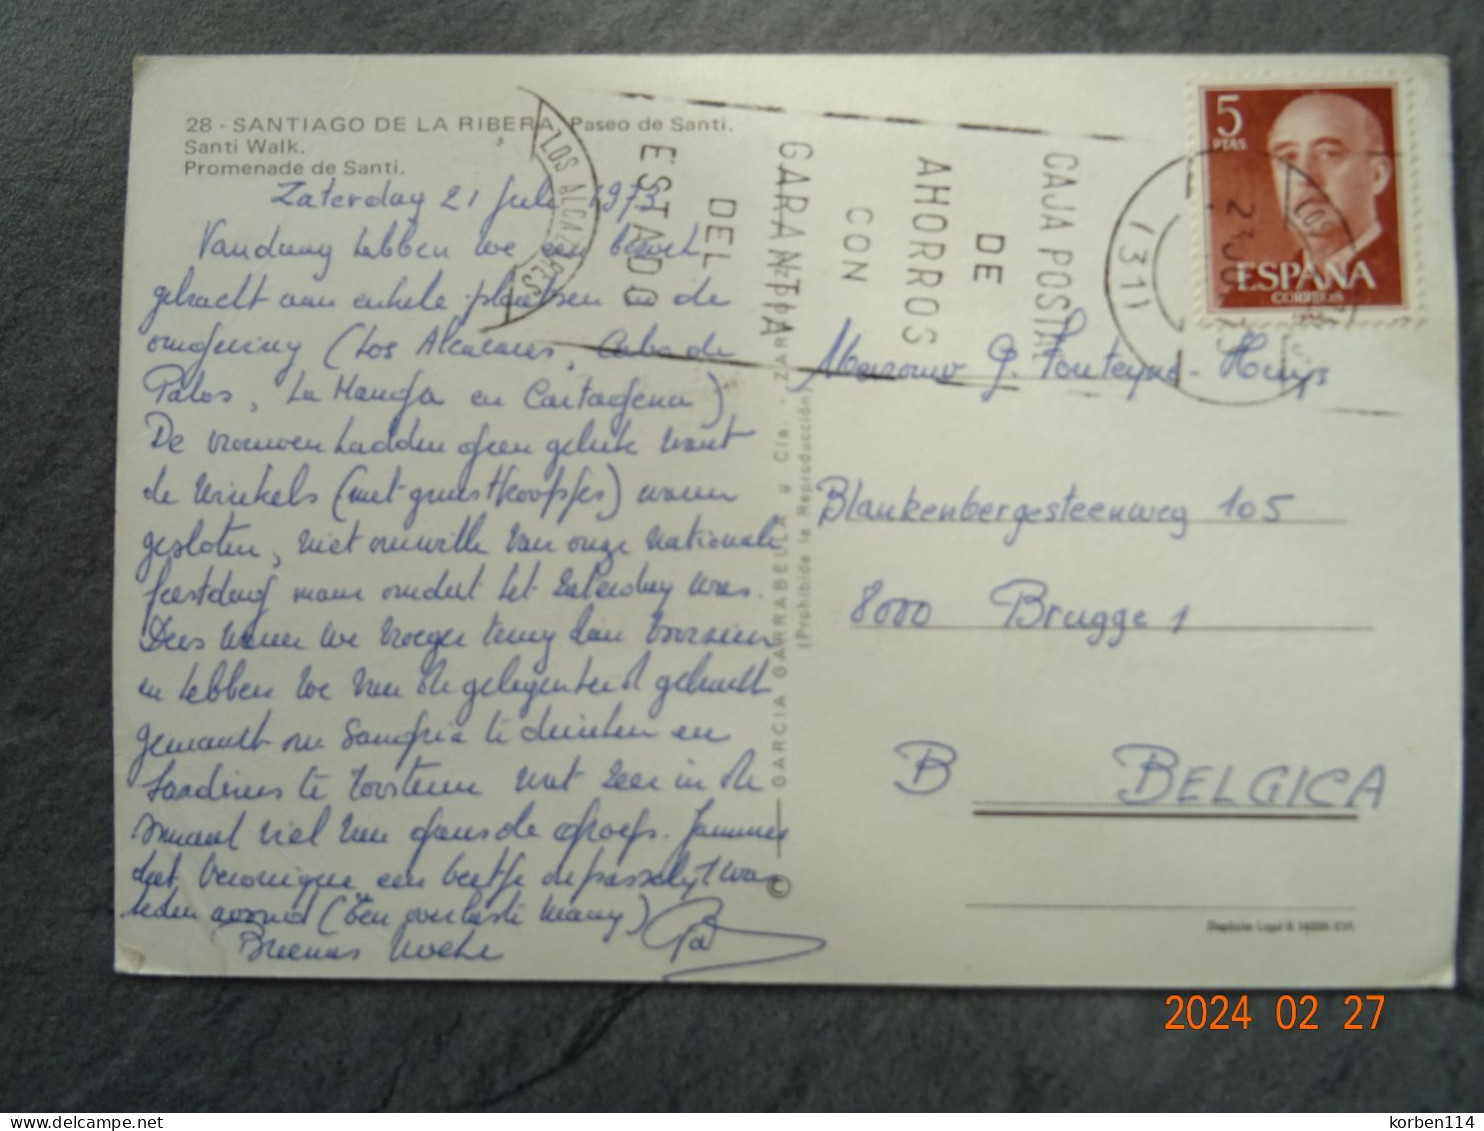 28 - SANTIAGO DE LA RIBERA. Paseo de Santi.
Santi Walk.
Promenade de Santi.
Zaterdag 21 juli 1973
Vandaag hebben we een bezoek
gebracht aan enkele plaatsen in de
omgeving (Los Alcazares, Cabo de
Palos, La Manga en Cartagena)
De vrouwen hadden geen geluk want
de winkels (met gunstkoopjes) waren
gesloten, niet omwille van onze nationale
feestdag maar omdat het zaterdag was.
Dus waren we vroeger terug dan voorzien
en hebben we van de gelegenheid gebruik
gemaakt om Sangria te drinken en
Sardines te roosteren wat zeer in de
smaak viel van gans de groep. Jammer
dat Veronique een beetje onpasselijk was
heden avond (
Buenas Noche Pa
LOS ALCAZARES
ESTADO
DEL
GARANTIA
CON
AHORROS
DE
CAJA POSTAL
(31)
LOS
5
PTAS
ESPAÑA
CORREOS
© GARCIA GARRABELLA y Cia. - ZARAGOZA
(Prohibida la Reproducción)
Mevrouw G. Ponteyne - Huys
Blankenbergesteenweg 105
8000 Brugge 1
B BELGICA
Depósito Legal
2024 02 27
korben114